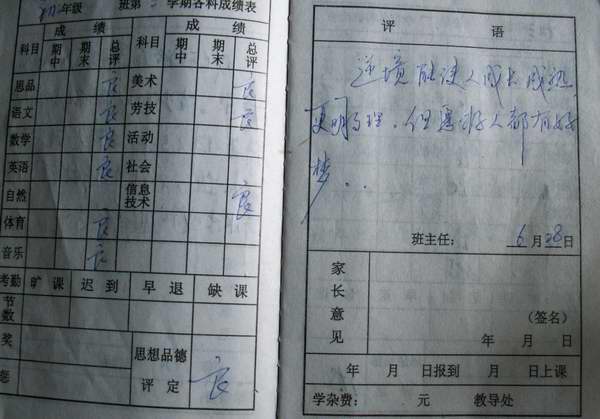 初二年级 班第二学期各科成绩表
科目 成绩 科目 成绩
期中 期末 总评 期中 期末 总评
思品 良 美术 良
语文 良 劳技 良
数学 良 活动
英语 良 社会
自然 信息技术 良
体育 良
音乐 良
考勤 旷课 迟到 早退 缺课
节数
奖 思想品德
惩 评定 良
评语
逆境能使人成长成熟
更明事理，但愿好人都有好
梦..
班主任： 6月28日
家长意见
(签名)
年 月 日
年 月 日报到 月 日上课
学杂费： 元 教导处